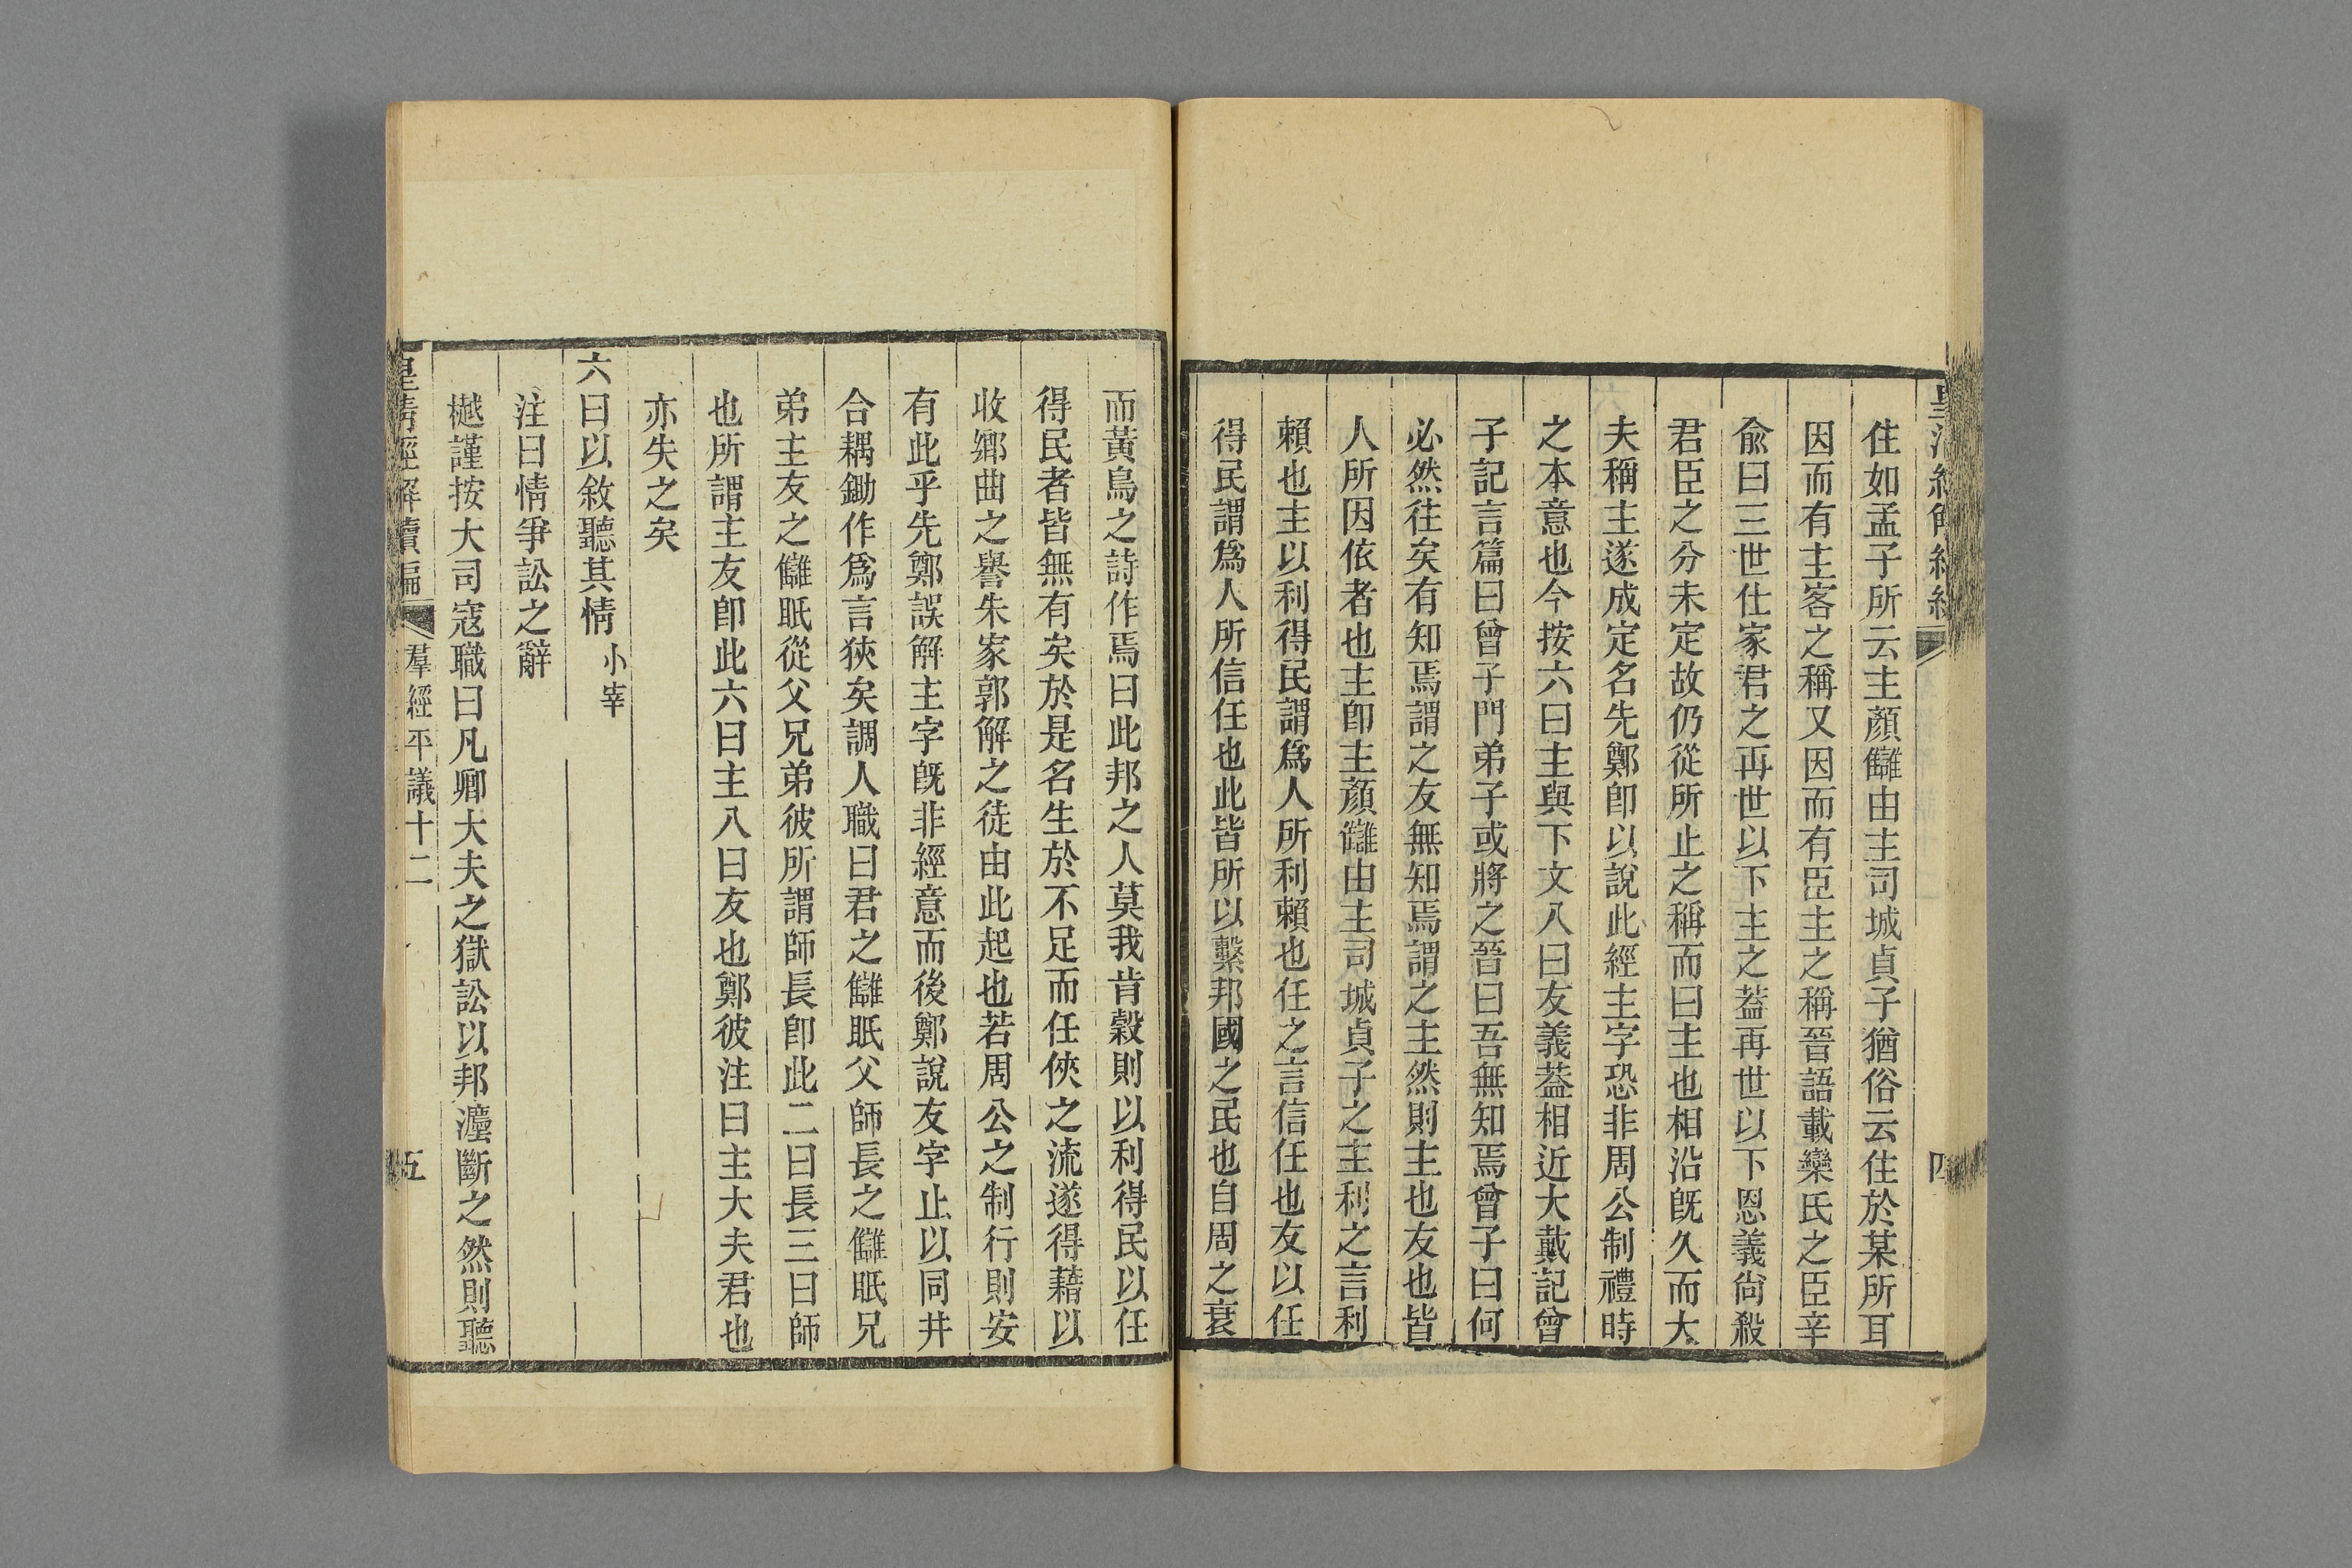 住如孟子所云主顏讎由主司城貞子猶俗云住於某所耳
因而有主客之稱又因而有臣主之稱晉語載欒氏之臣辛
俞曰三世仕家君之再世以下主之葢再世以下恩義尙殺
君臣之分未定故仍從所止之稱而曰主也相沿旣久而大
夫稱主遂成定名先鄭卽以說此經主字恐非周公制禮時
之本意也今按六曰主與下文八曰友義葢相近大戴記曾
子記言篇曰曾子門弟子或將之晉曰吾無知焉曾子曰何
必然往矣有知焉謂之友無知焉謂之主然則主也友也皆
人所因依者也主卽主顏讎由主司城貞子之主利之言利
賴也主以利得民謂爲人所利賴也任之言信任也友以任
得民謂爲人所信任也此皆所以繫邦國之民也自周之衰
而黃鳥之詩作焉曰此邦之人莫我肯穀則以利得民以任
得民者皆無有矣於是名生於不足而任俠之流遂得藉以
收鄉曲之譽朱家郭解之徒由此起也若周公之制行則安
有此乎先鄭誤解主字旣非經意而後鄭說友字止以同井
合耦鋤作爲言狹矣調人職曰君之讎眂父師長之讎眂兄
弟主友之讎眂從父兄弟彼所謂師長卽此二曰長三曰師
也所謂主友卽此六曰主八曰友也鄭彼注曰主大夫君也
亦失之矣
六曰以敘聽其情 小宰
注曰情爭訟之辭
樾謹按大司寇職曰凡卿大夫之獄訟以邦灋斷之然則聽
皇淸經解續編 羣經平議十二 五